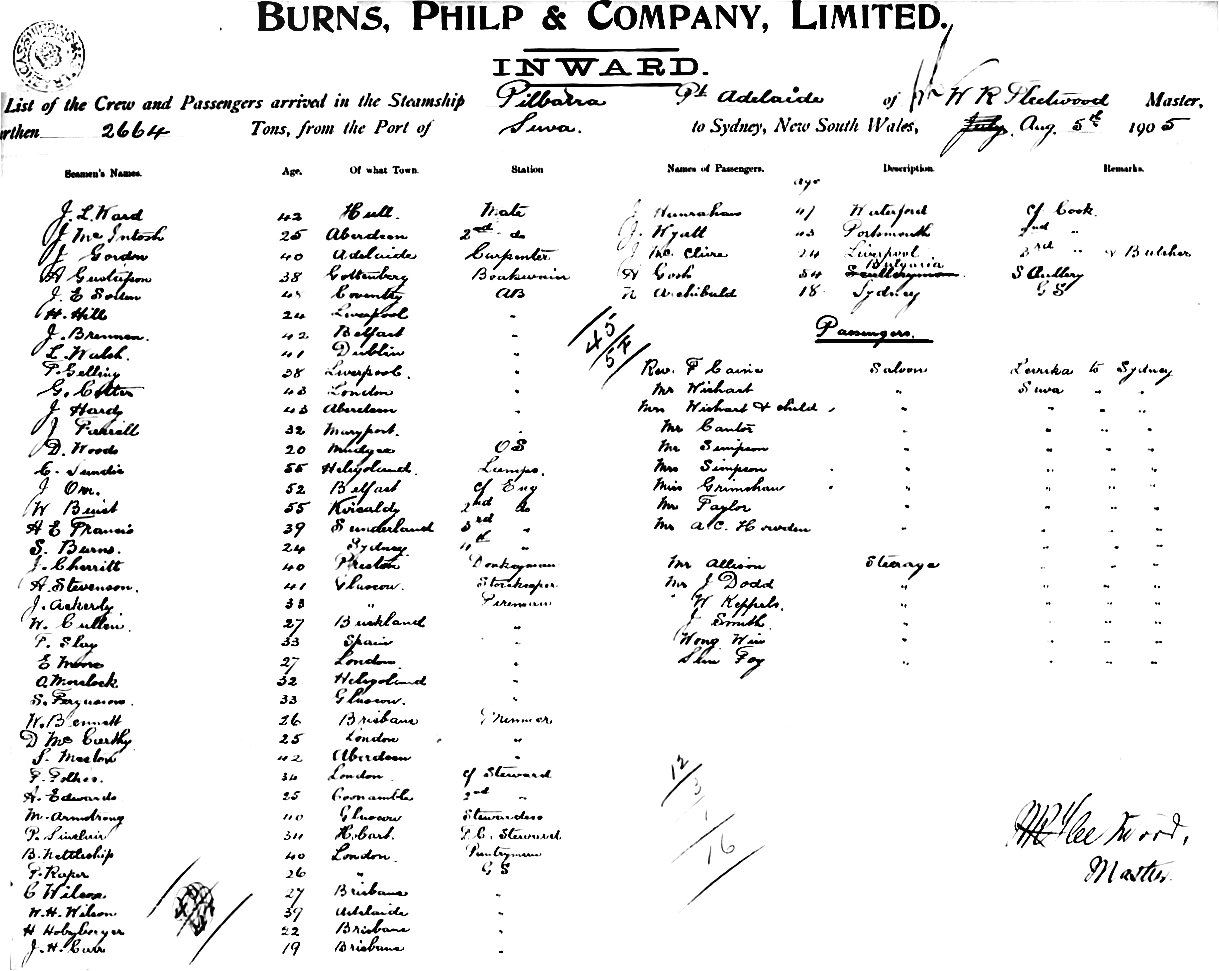 BURNS, PHILP & COMPANY, LIMITED.
INWARD.
List of the Crew and Passengers arrived in the Steamship Pilbarra Pt Adelaide of W R Fleetwood Master,
rthen 2664 Tons, from the Port of Suva. to Sydney, New South Wales, July Aug. 5th 1905
Seamen's Names. Age. Of what Town. Station Names of Passengers. age Description. Remarks.
J. L. Ward 42 Hull. Mate J Hanrahan 47 Waterford Cf Cook.
J. McIntosh 25 Aberdeen 2nd do J. Wyatt 43 Portsmouth 2nd "
J Gordon 40 Adelaide Carpenter J McClure 24 Liverpool 3rd " & Butcher
A Gustafson 38 Gottenberg Boatswain A Gosh 34 Bulgaria Scullery
J. E 48 Coventry AB Archibald 18 Sydney GS
H. Hill 24 Liverpool "
J. Brennan. 42 Belfast "
Passengers.
L. Walsh. 41 Dublin "
45/54
P. Gelling 38 Liverpool. " Rev. F Caine Saloon Levuka to Sydney
G. Cotter 43 London " Mr Wishart " Suva " "
J Hardy 43 Aberdeen " Mrs Wishart & child " " " "
J Farrell 32 Maryport. " Mr Cantor " " " "
D. Woods 20 Mudgee OS Mr Simpson " " " "
C. 55 Heligoland. Lamps. Mrs Simpson " " " "
J Orr. 52 Belfast Cf Eng Miss Grimshaw " " " "
W Buist 55 Kircaldy 2nd do Mr Taylor " " " "
A E Francis 39 Sunderland 3rd " Mr A. C. Howden " " " "
S. Burns. 24 Sydney 4th "
J. Cherritt 40 Preston Donkeyman Mr Allison Steerage " " "
A. Stevenson. 41 Glasgow. Storekeeper Mr J Dodd " " " "
J. Ackerly 33 " Fireman " W Keppels. " " " "
W. Cullen. 27 Buckland " J Smith " " " "
F. Slay 33 Spain " Wong Win " " " "
E Moore 27 London. " Sim Foy " " " "
O Morlock 32 Heligoland "
S. Ferguson. 33 Glasgow. "
W. Bennett 26 Brisbane Trimmer
D McCarthy 25 London "
S. Maslow 42 Aberdeen "
F. 34 London Cf Steward
12
3
1
16
A. Edwards 25 Coonamble 2nd "
M. Armstrong 40 Glasgow Stewardess
P. Sinclair 34 Hobart. Steward
B. Nettleship 40 London. Pantryman
F. Roper 26 " GS
C Wilson 27 Brisbane "
W. H. Wilson 39 Adelaide "
H 22 Brisbane "
J. H. Carr 19 Brisbane "
W R Fleetwood.
Master.